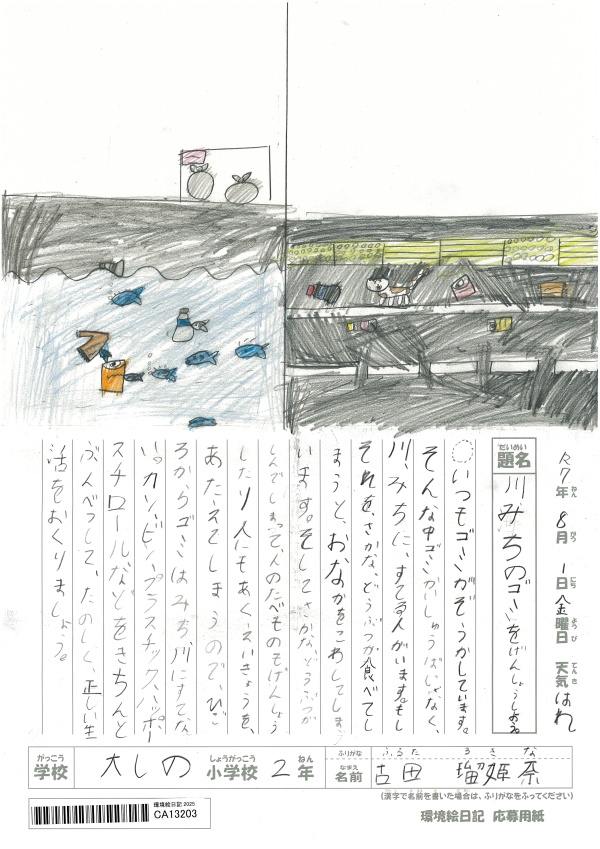 R7年 8月 1日 金曜日 天気 はれ
ねん がつ にち ようび てんき
だいめい
題名
川みちのゴミをげんしょうしよう。
いつもゴミがぞうかしています。
そんな中ゴミかいしゅうばじゃなく、
川、みちに、すてる人がいます。もし
それを、さかな、どうぶつが食べてし
まうと、おなかをこわしてしま
います。そしてさかな、どうぶつが
しんでしまって、人のたべものもげんしょう
したり人にもあくえいきょうを、
あたえてしまうので、ひご
ろからゴミはみち、川にすてな
い。カン、ビン、プラスチック、ハッポー
スチロールなどをきちんと
ぶんべつして、たのしく、正しい生
活をおくりましょう。
がっこう
学校
大しの
しょうがっこう
小学校
2
ねん
年
ふりがな
ふるた るきな
なまえ
名前
古田 瑠姫奈
(漢字で名前を書いた場合は、ふりがなをふってください)
環境絵日記 応募用紙
環境絵日記 2025
CA13203